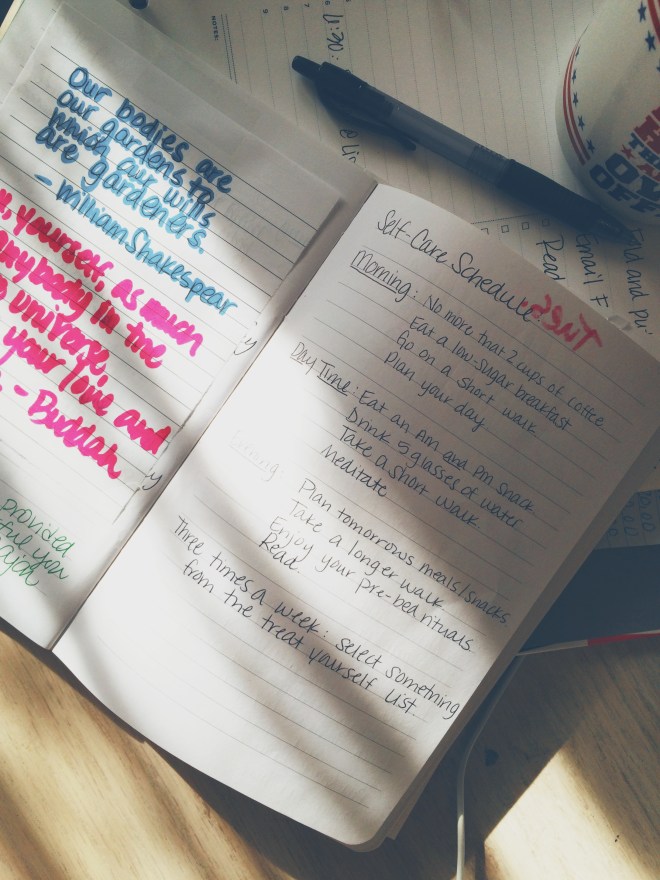 Our bodies are
our gardens to
which our wills
are gardeners.
- William Shakespear
yourself, as much
anybody in the
universe,
your love and
- Buddah
provided
you
Self-Care Schedule
Morning: No more that 2 cups of coffee
Eat a low-sugar breakfast
Go on a short walk
Plan your day
Day Time: Eat an Am and Pm snack
Drink 5 glasses of water
Take a short walk
Meditate
Plan tomorrows meals/snacks
Take a longer walk
Enjoy your pre-bed rituals
Read.
Three times a week: select something
from the treat yourself list.
NOTES:
Read
Email F
and pu
THE
OV
OFF